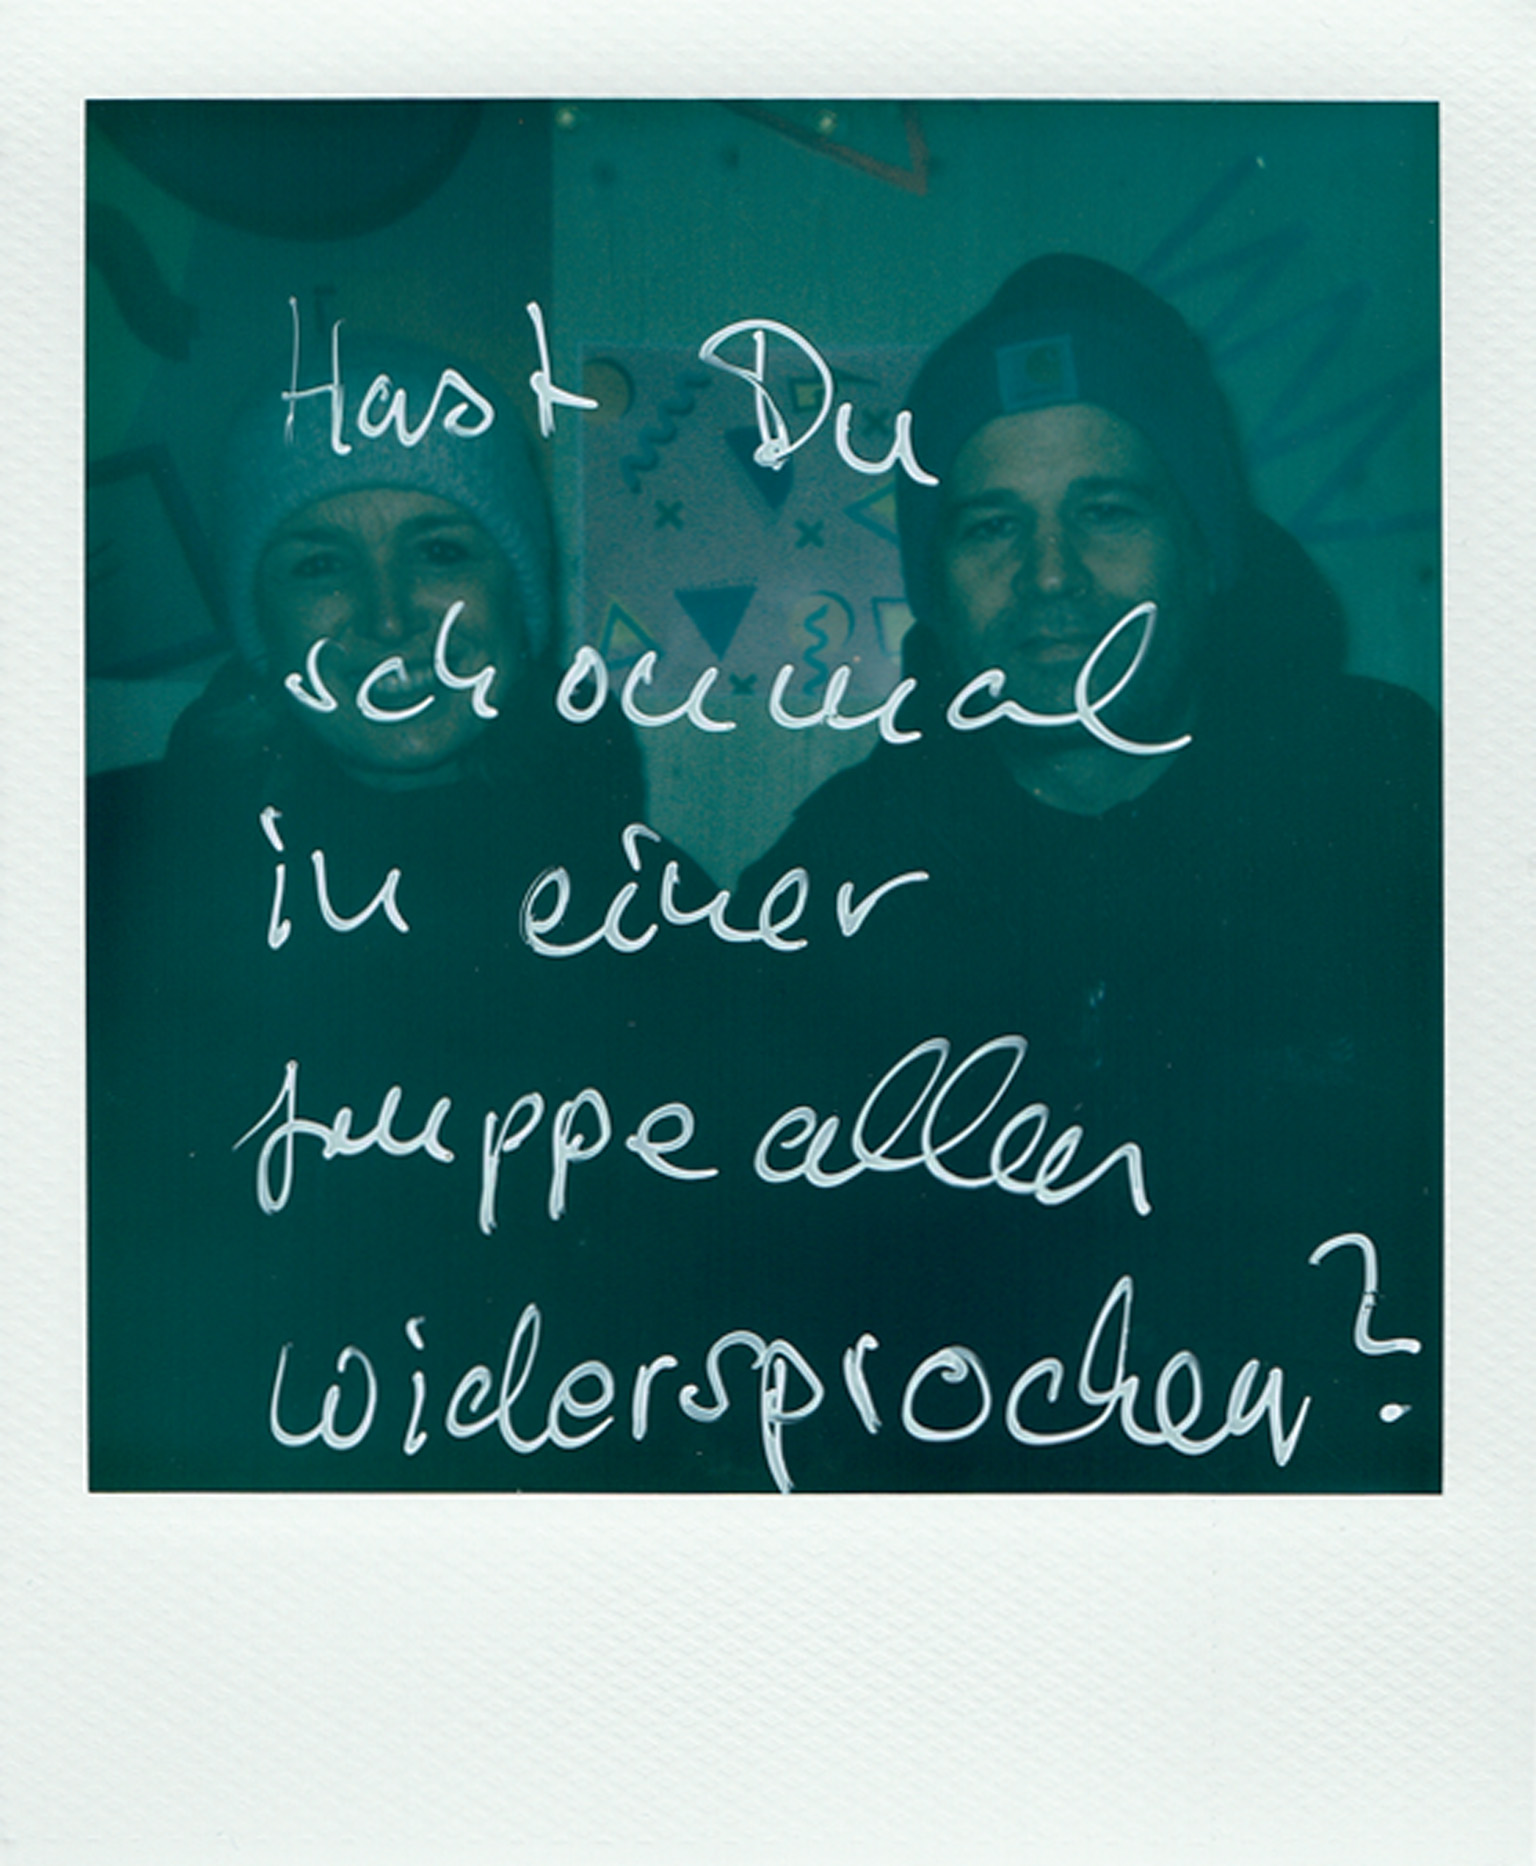 Hast Du
schonmal
in einer
gruppe allen
widersprochen?